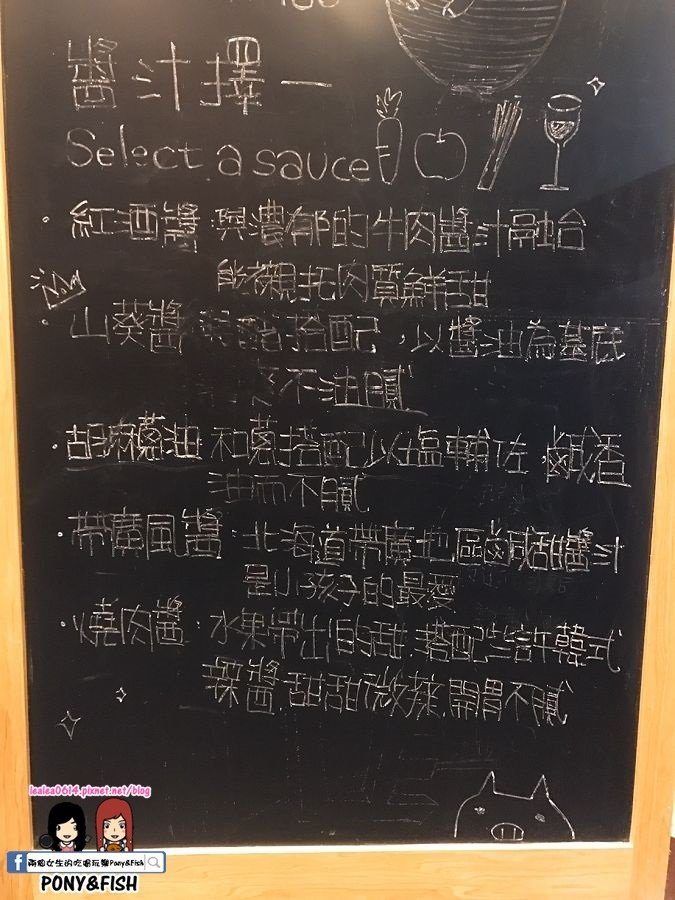 醬汁擇一
Select a sauce
・紅酒醬：與濃郁的牛肉醬汁融合
能襯托肉質鮮甜
・山葵醬 搭配，以醬油為基底
不油膩
・胡麻蔥油 和蔥搭配以塩輔佐，鹹香
油而不膩
・帶廣風醬：北海道帶廣地區鹹甜醬汁
是小孩子的最愛
・燒肉醬：水果帶出的甜，搭配些許韓式
辣醬，甜甜微辣，開胃不膩
lealea0614.pixnet.net/blog
兩個女生的吃喝玩樂Pony&Fish
PONY&FISH